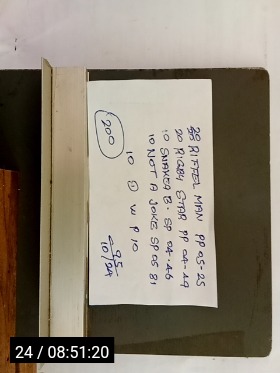 20 RIFFIEL MAN PP 05-25
20 RIGBY STAR PP 04-49
10 SNAKEA B. SP 04.46
10 NOT A JOKE SP 05 81
10 ① W P 10
200
10/24
24 / 08:51:20